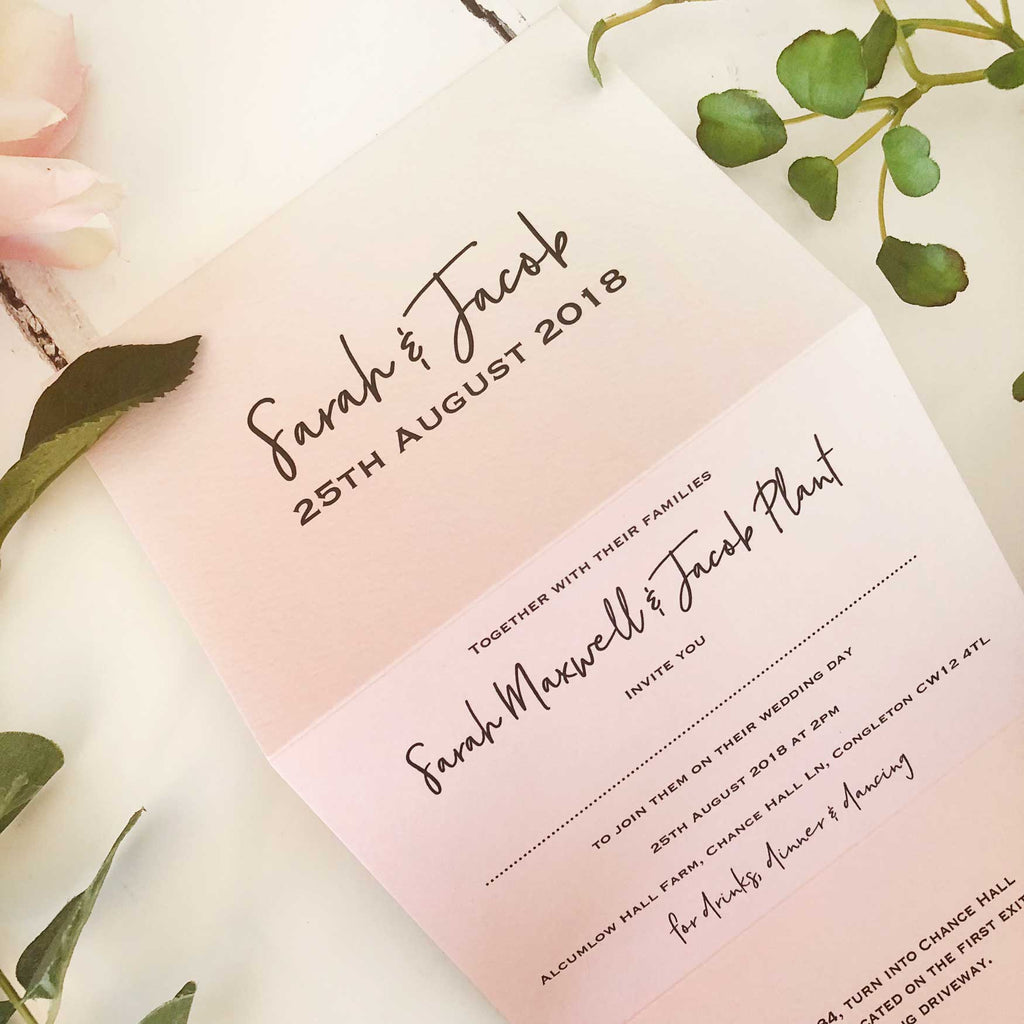 Sarah & Jacob
25TH AUGUST 2018
TOGETHER WITH THEIR FAMILIES
Sarah Maxwell & Jacob Plant
INVITE YOU
TO JOIN THEM ON THEIR WEDDING DAY
25TH AUGUST 2018 AT 2PM
ALCUMLOW HALL FARM, CHANCE HALL LN, CONGLETON CW12 4TL
for drinks, dinner & dancing
34, TURN INTO CHANCE HALL
ON THE FIRST EXIT
DRIVEWAY.